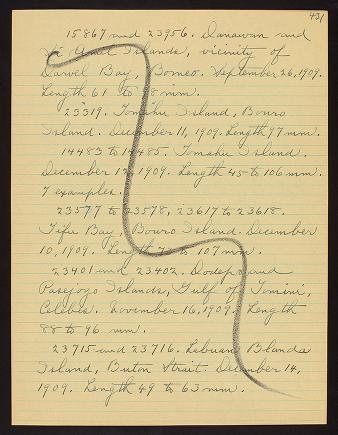 431
15867 and 23956. Danawan and
Si Amil Islands, vicinity of
Darvel Bay, Borneo. September 26, 1909.
Length 61 to 88 mm.
23319. Tomahu Island, Bouro
Island. December 11, 1909. Length 97 mm.
14483 to 14485. Tomahu Island.
December 12, 1909. Length 45 to 106 mm.
7 examples.
23577 to 23578, 23617 to 23618.
Tifu Bay, Bouro Island. December
10, 1909. Length to 107 mm.
23401 and 23402. Dodepo and
Pasejogo Islands, Gulf of Tomini,
Celebes. November 16, 1909. Length
88 to 96 mm.
23715 and 23716. Lebuan Blanda
Island, Buton Strait. December 14,
1909. Length 49 to 63 mm.